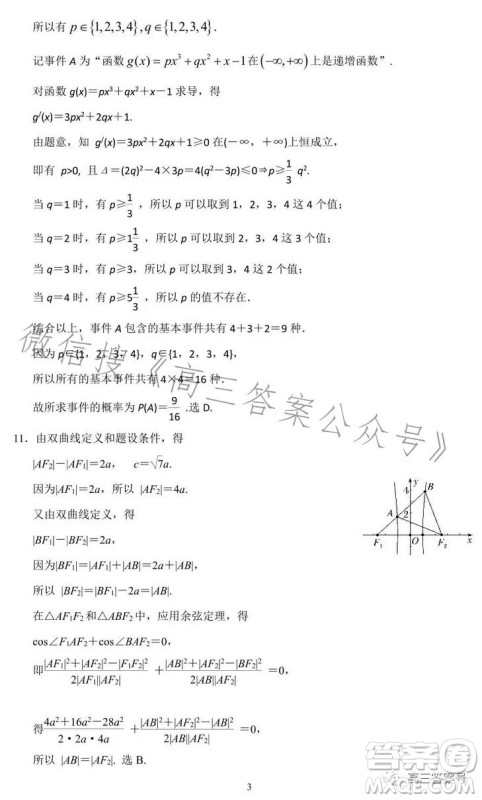 所以有 p∈{1,2,3,4},q∈{1,2,3,4}.
记事件 A 为“函数 g(x) = px³+qx²+x-1在(-∞,+∞)上是递增函数”.
对函数 g(x)=px³+qx²+x-1 求导，得
g′(x)=3px²+2qx+1.
由题意，知 g′(x)=3px²+2qx+1≥0 在(-∞，+∞)上恒成立，
即有 p>0, 且Δ=(2q)²-4×3p=4(q²-3p)≤0⇒p≥1/3 q².
当 q=1 时，有 p≥1/3，所以 p 可以取到 1，2，3，4 这 4 个值；
当 q=2 时，有 p≥1 1/3，所以 p 可以取到 2，3，4 这 3 个值；
当 q=3 时，有 p≥3，所以 p 可以取到 3，4 这 2 个值；
当 q=4 时，有 p≥5 1/3，所以 p 的值不存在．
综合以上，事件 A 包含的基本事件共有 4+3+2=9 种．
因为 p∈{1，2，3，4}，q∈{1，2，3，4}，
所以所有的基本事件共有 4×4=16 种．
故所求事件的概率为 P(A)=9/16 .选 D.
11．由双曲线定义和题设条件，得
|AF₂|-|AF₁|=2a， c=√7a.
因为|AF₁|=2a，所以 |AF₂|=4a.
又由双曲线定义，得
|BF₁|-|BF₂|=2a，
因为|BF₁|=|AF₁|+|AB|=2a+|AB|，
所以 |BF₂|=|BF₁|-2a=|AB|.
在△AF₁F₂ 和△ABF₂ 中，应用余弦定理，得
cos∠F₁AF₂+cos∠BAF₂=0，
即(|AF₁|²+|AF₂|²-|F₁F₂|²)/(2|AF₁||AF₂|) +(|AB|²+|AF₂|²-|BF₂|²)/(2|AB||AF₂|) =0，
得(4a²+16a²-28a²)/(2·2a·4a) +(|AB|²+|AF₂|²-|AB|²)/(2|AB||AF₂|) =0，
所以 |AB|=|AF₂|. 选 B.
y
4
B
A
2
F₁
O
F₂
x
微信搜《高三答案公众号》
3
高三答案号
答案圈
MXQE.COM